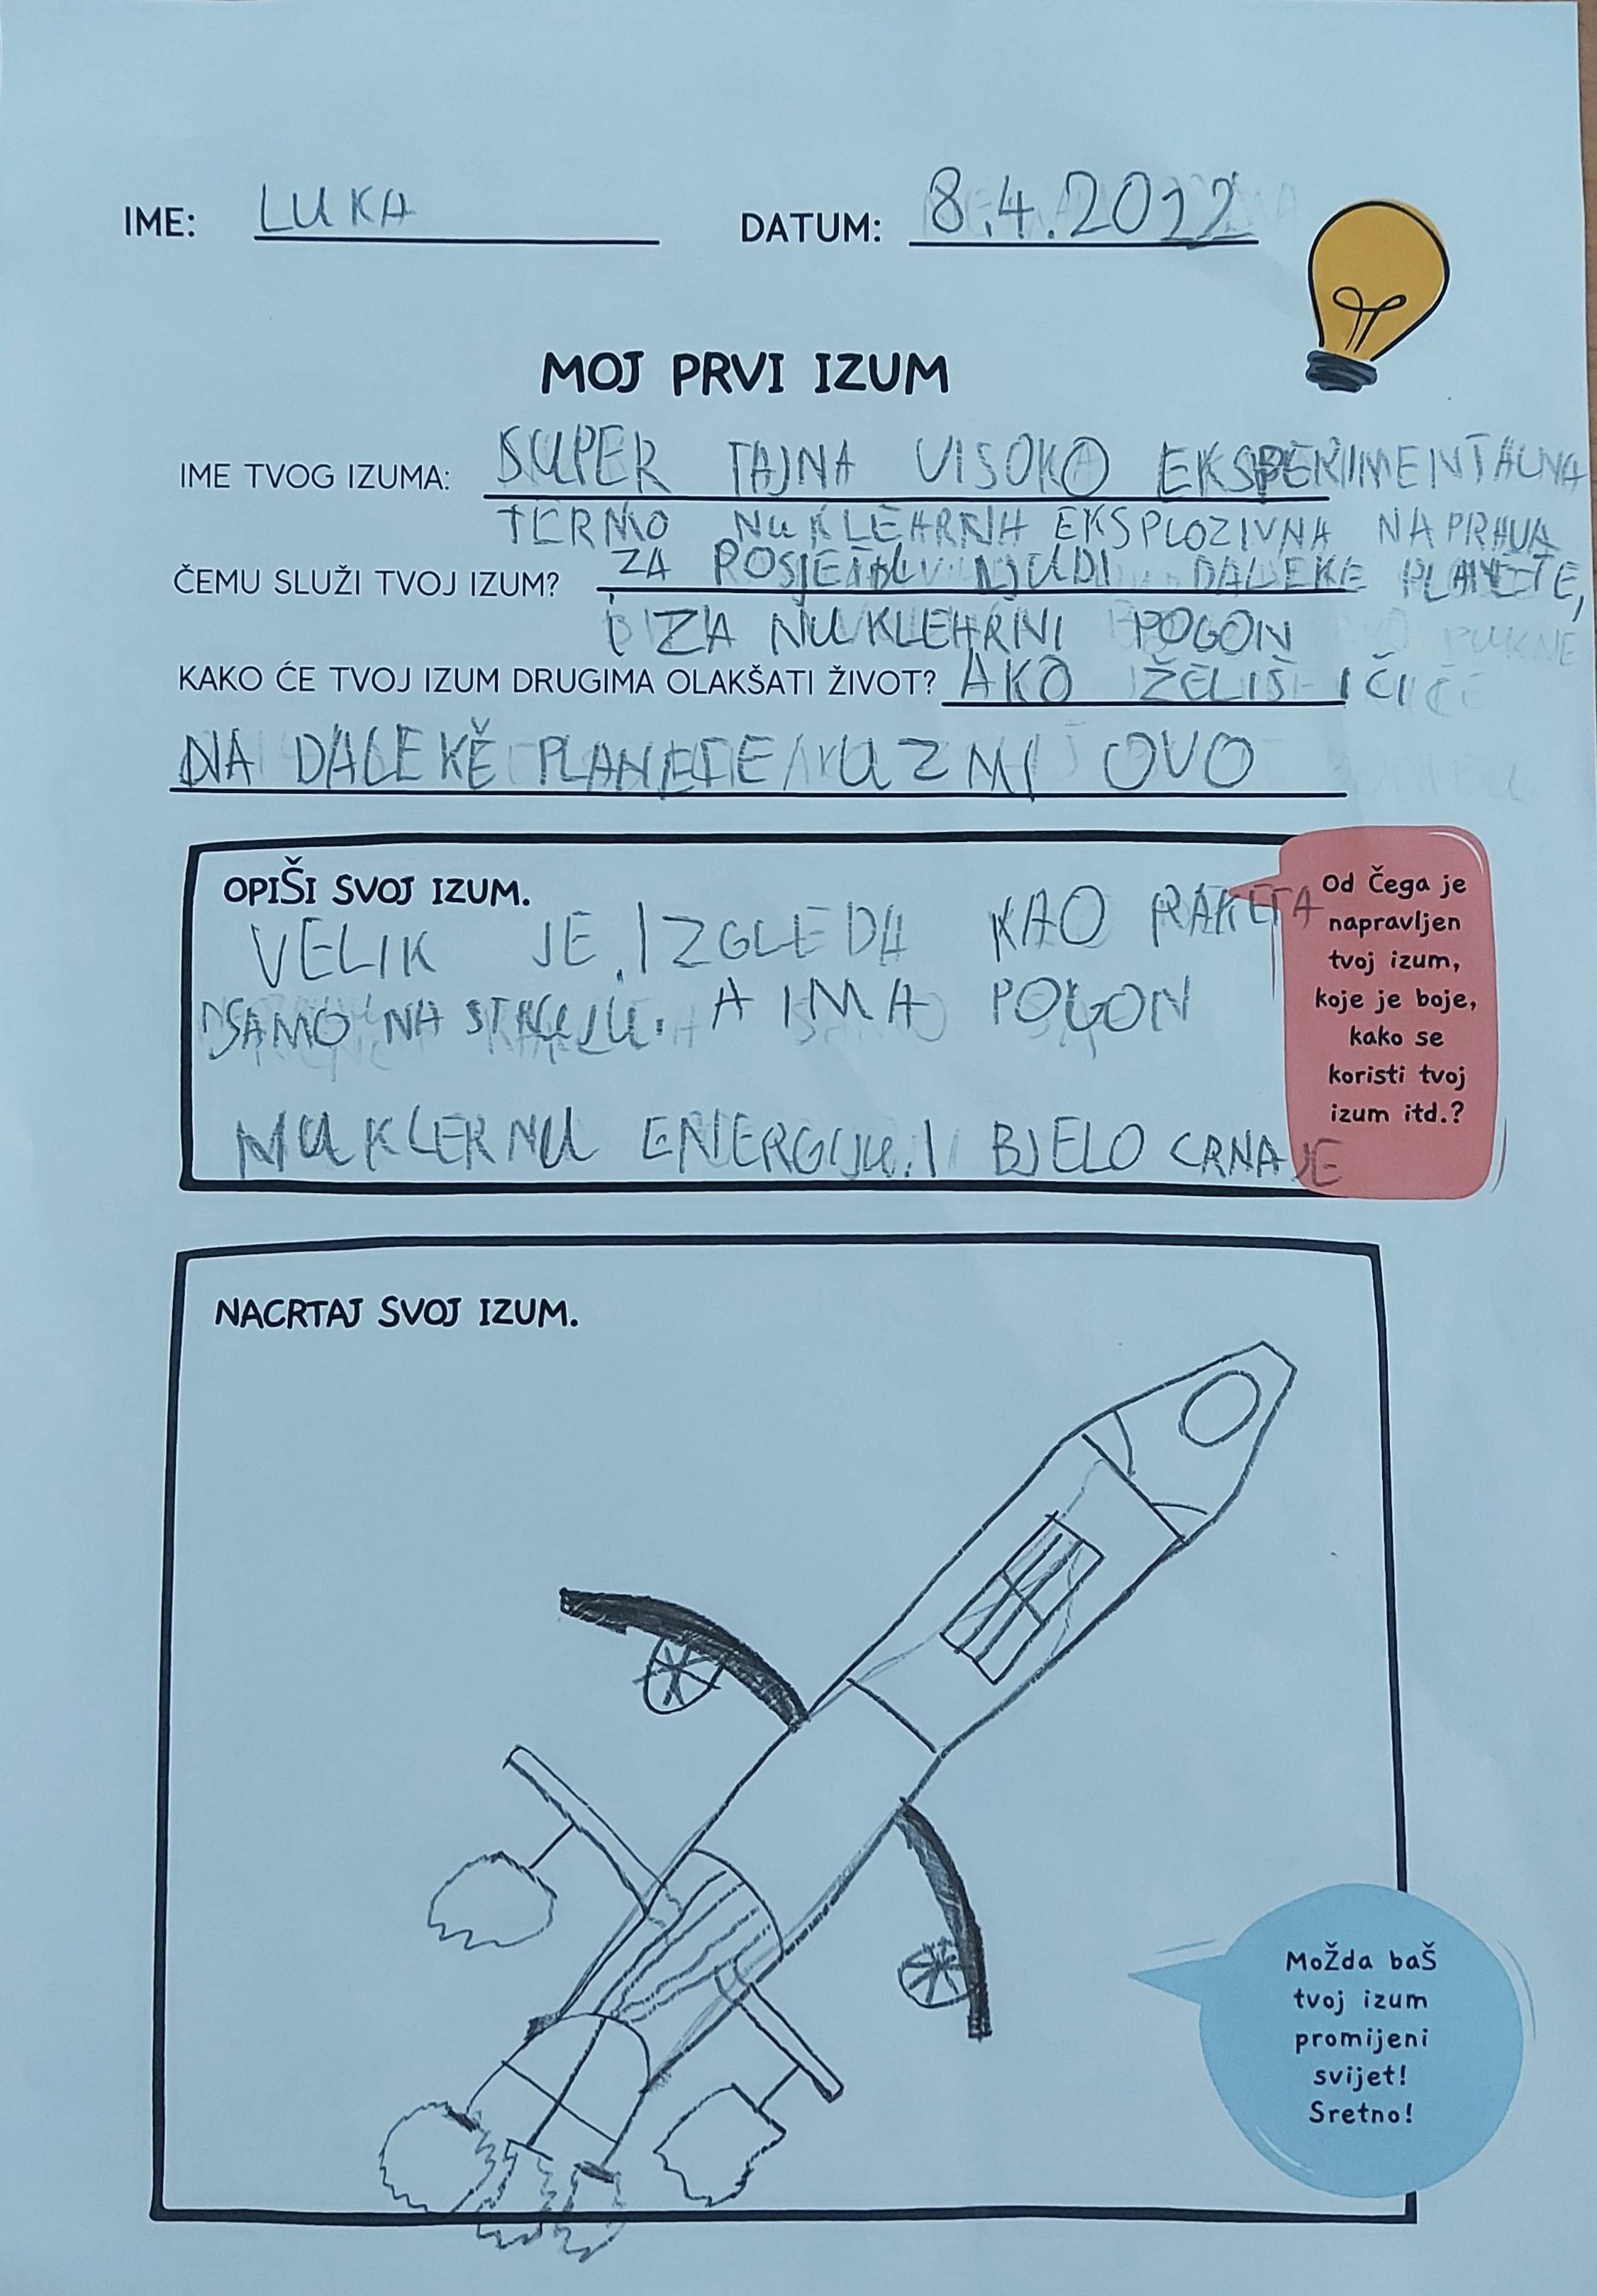 IME: LUKA DATUM: 8.4.2022
MOJ PRVI IZUM
IME TVOG IZUMA: SUPER TAJNA VISOKO EKSPERIMENTALNA
TERMO NUKLEARNA EKSPLOZIVNA NAPRAVA
ČEMU SLUŽI TVOJ IZUM? ZA POSJETU LJUDI DALEKE PLANETE,
I ZA NUKLEARNI POGON
KAKO ĆE TVOJ IZUM DRUGIMA OLAKŠATI ŽIVOT? AKO ŽELIŠ IČI
NA DALEKE PLANETE UZMI OVO
OPIŠI SVOJ IZUM.
VELIK JE. IZGLEDA KAO RAKETA
SAMO NA STRUJU. A IMA POGON
NUKLERNU ENERGIJU. I BJELO CRNA JE
Od Čega je
napravljen
tvoj izum,
koje je boje,
kako se
koristi tvoj
izum itd.?
NACRTAJ SVOJ IZUM.
MoŽda baŠ
tvoj izum
promijeni
svijet!
Sretno!